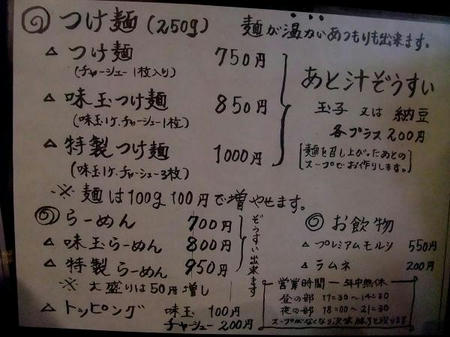 ◎ つけ麺 (250g) 麺が温かいあつもりも出来ます。
△ つけ麺 750円
(チャーシュー1枚入り)
△ 味玉つけ麺 850円
(味玉1ケ.チャーシュー1枚)
△ 特製つけ麺 1000円
(味玉1ケ.チャーシュー3枚)
※ 麺は100g 100円で増やせます。
あと汁ぞうすい
玉子 又は 納豆
各プラス 200円
[麺を召し上がったあとの
スープでお作りします。]
◎ らーめん 700円
△ 味玉らーめん 800円
△ 特製らーめん 950円
※ 大盛りは50円増し
ぞうすい出来ます
△ トッピング 味玉 100円
チャーシュー 200円
◎ お飲物
△ プレミアムモルツ 550円
△ ラムネ 200円
営業時間 年中無休
昼の部 11:30〜14:30
夜の部 18:00〜21:30
スープがなくなり次第 終了と致します